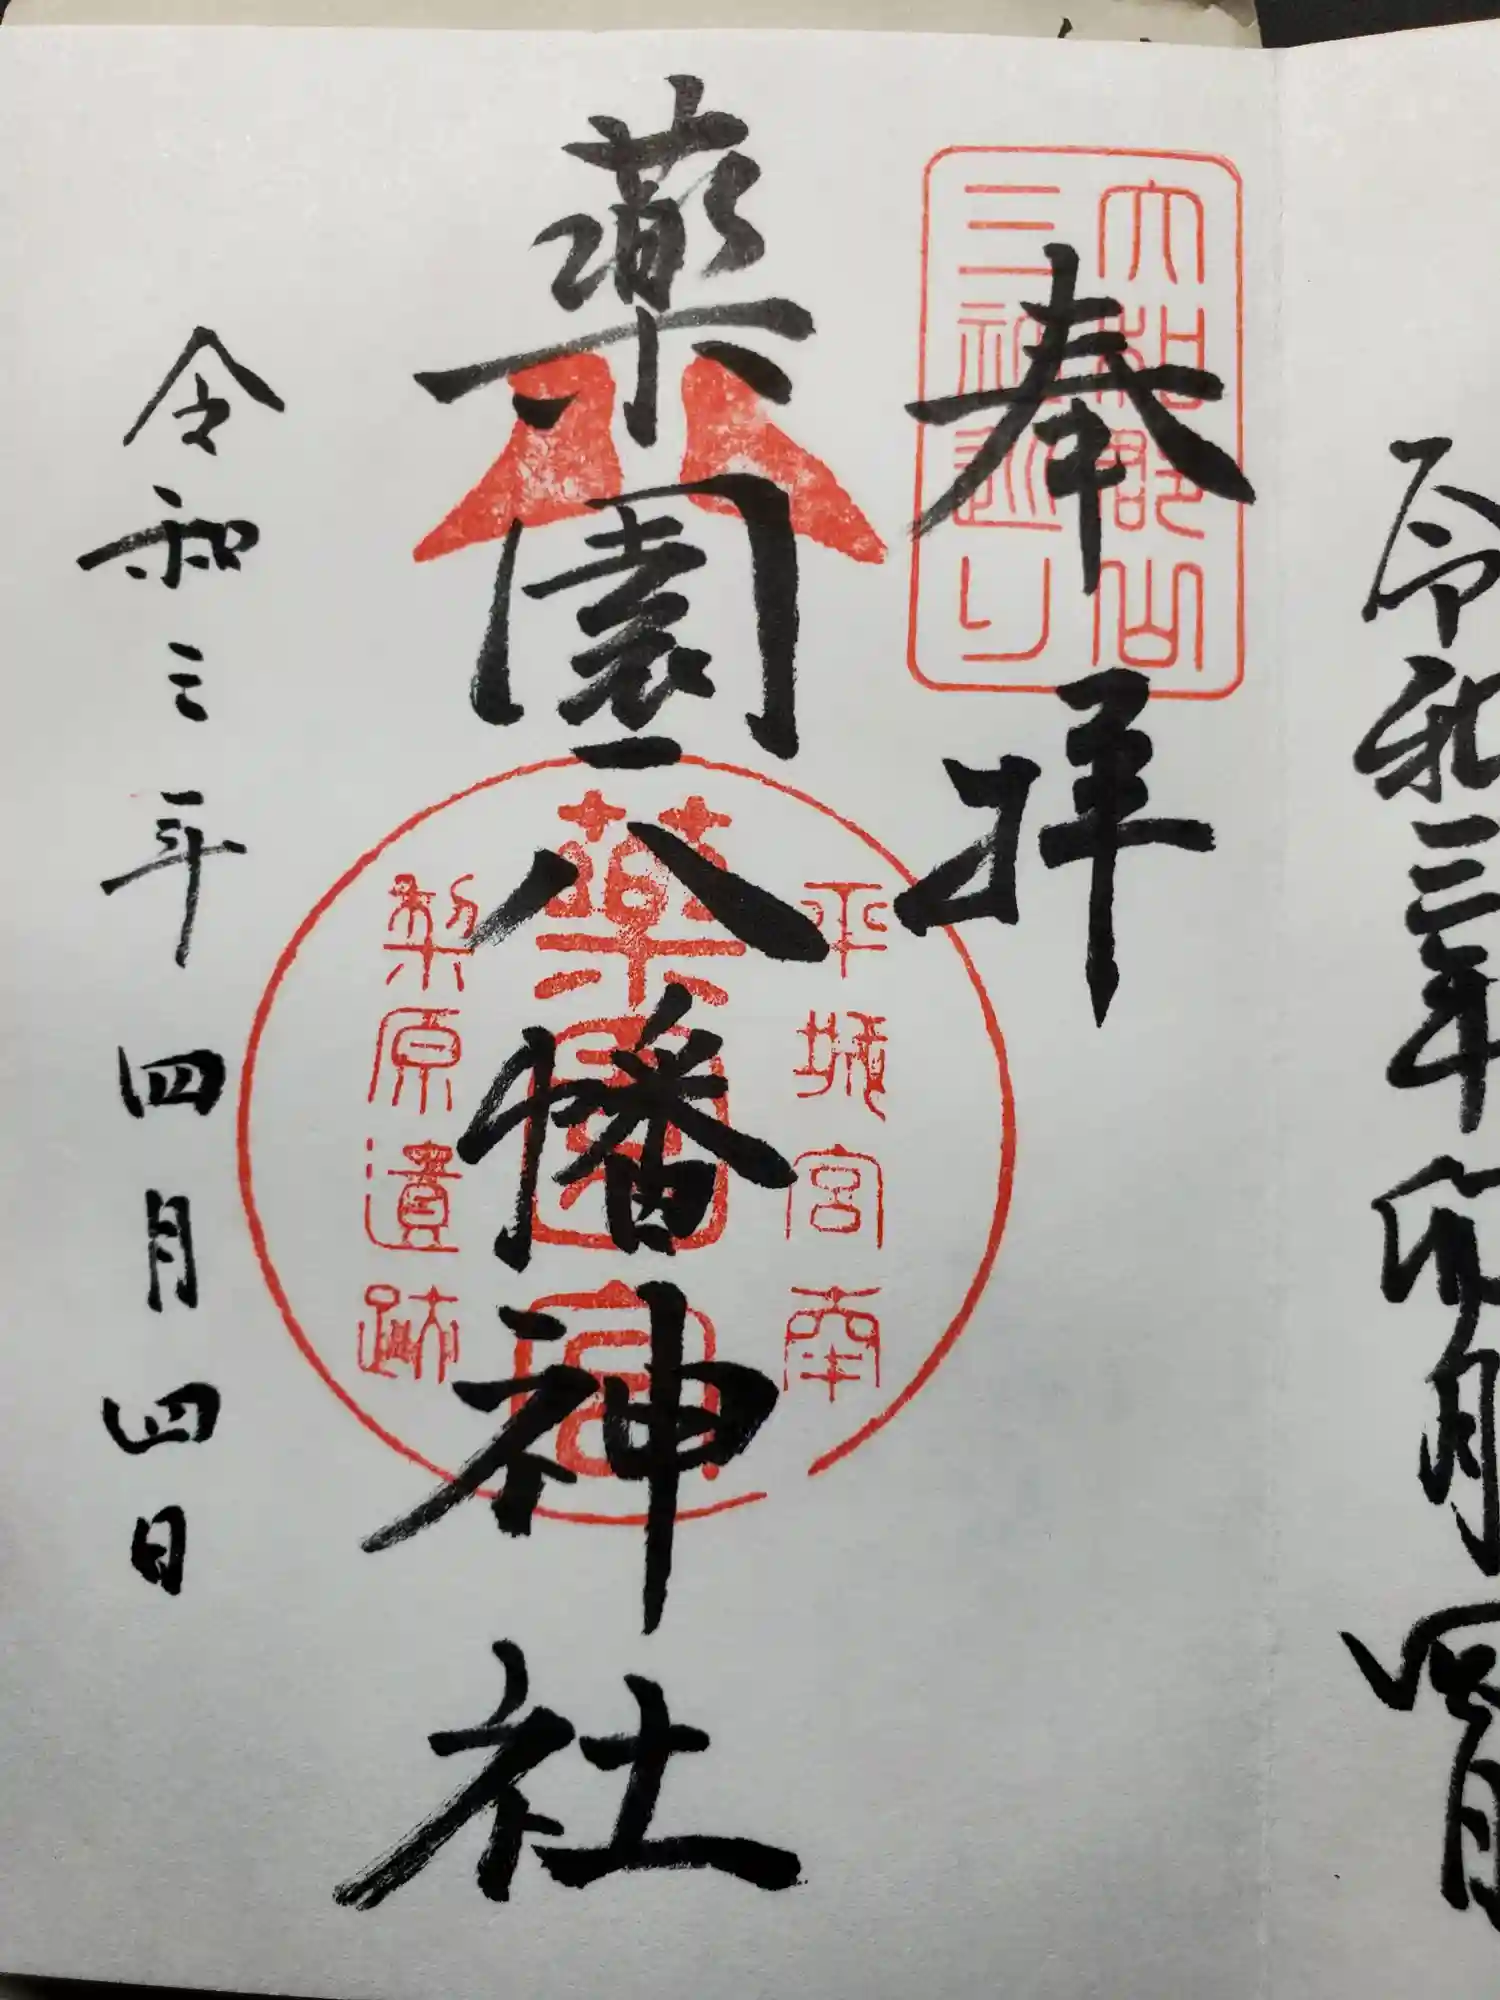 令和三年四月四日
大和郡山
三社巡り
奉拝
薬園八幡神社
平城宮南
薬園宮
梨原遺跡
令和三年四月四日